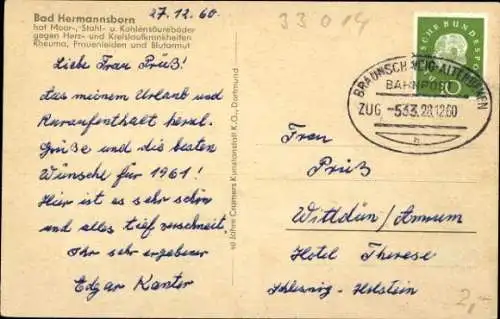 Bad Hermannsborn
hat Moor-, Stahl- u. Kohlensäurebäder
gegen Herz- und Kreislaufkrankheiten
Rheuma, Frauenleiden und Blutarmut
27.12.60.
Liebe Frau Prüß!
Aus meinem Urlaub und
Kuraufenthalt herzl.
Grüße und die besten
Wünsche für 1961!
Hier ist es sehr schön
und alles tief verschneit.
Ihr sehr ergebener
Edgar Kanter
Jahre Cramers Kunstanstalt K.G., Dortmund
33014
DEUTSCHE BUNDESPOST
10
BRAUNSCHWEIG-ALTENBEKEN
BAHNPOST
ZUG -533. 28.12.60
Frau
Prüß
Wittdün/Amrum
Hotel Therese
Schleswig-Holstein
2,-